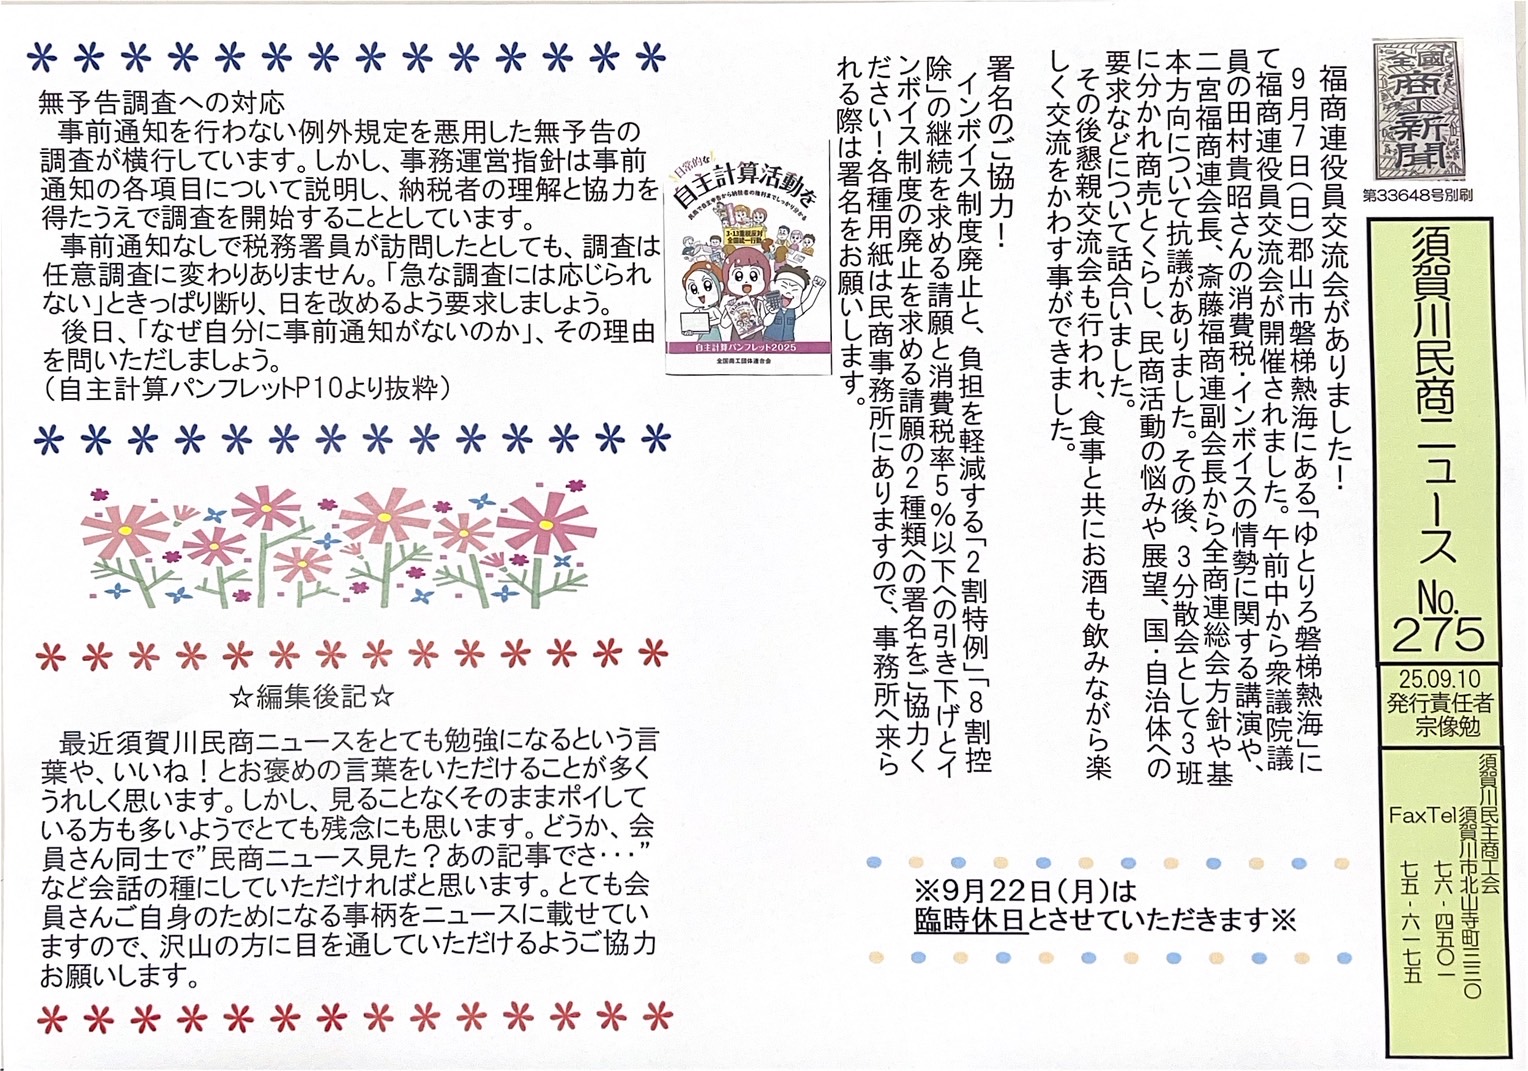 全國商工新聞
第33648号別刷
須賀川民商ニュース No.275
25.09.10
発行責任者
宗像勉
須賀川民主商工会
須賀川市北山寺町三三〇
Tel 七六-四五〇一
Fax 七五-六一七五
福商連役員交流会がありました!
9月7日(日)郡山市磐梯熱海にある「ゆとりろ磐梯熱海」に
て福商連役員交流会が開催されました。午前中から衆議院議
員の田村貴昭さんの消費税・インボイスの情勢に関する講演や、
二宮福商連会長、斎藤福商連副会長から全商連総会方針や基
本方向について抗議がありました。その後、3分散会として3班
に分かれ商売とくらし、民商活動の悩みや展望、国・自治体への
要求などについて話合いました。
その後懇親交流会も行われ、食事と共にお酒も飲みながら楽
しく交流をかわす事ができました。
署名のご協力!
インボイス制度廃止と、負担を軽減する「2割特例」「8割控
除」の継続を求める請願と消費税率5%以下への引き下げとイ
ンボイス制度の廃止を求める請願の2種類への署名をご協力く
ださい!各種用紙は民商事務所にありますので、事務所へ来ら
れる際は署名をお願いします。
※9月22日(月)は
臨時休日とさせていただきます※
無予告調査への対応
事前通知を行わない例外規定を悪用した無予告の
調査が横行しています。しかし、事務運営指針は事前
通知の各項目について説明し、納税者の理解と協力を
得たうえで調査を開始することとしています。
事前通知なしで税務署員が訪問したとしても、調査は
任意調査に変わりありません。「急な調査には応じられ
ない」ときっぱり断り、日を改めるよう要求しましょう。
後日、「なぜ自分に事前通知がないのか」、その理由
を問いただしましょう。
(自主計算パンフレットP10より抜粋)
日常的な
自主計算活動を
民商で自主申告から納税者の権利までしっかり分かる
3・13重税反対
全国統一行動
自主計算パンフレット2025
全国商工団体連合会
☆編集後記☆
最近須賀川民商ニュースをとても勉強になるという言
葉や、いいね!とお褒めの言葉をいただけることが多く
うれしく思います。しかし、見ることなくそのままポイして
いる方も多いようでとても残念にも思います。どうか、会
員さん同士で”民商ニュース見た?あの記事でさ・・・”
など会話の種にしていただければと思います。とても会
員さんご自身のためになる事柄をニュースに載せてい
ますので、沢山の方に目を通していただけるようご協力
お願いします。